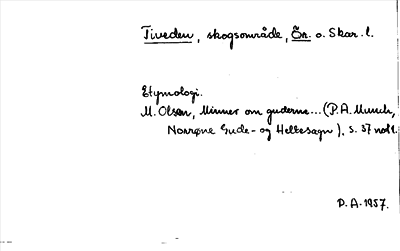 Tiveden, skogsområde, Ör. o. Skar. l.
Etymologi.
M. Olsen, Minner om guderne... (P. A. Munch,
Norrøne Gude- og Heltesagn), s. 57 not 1.
P. A. 1957.